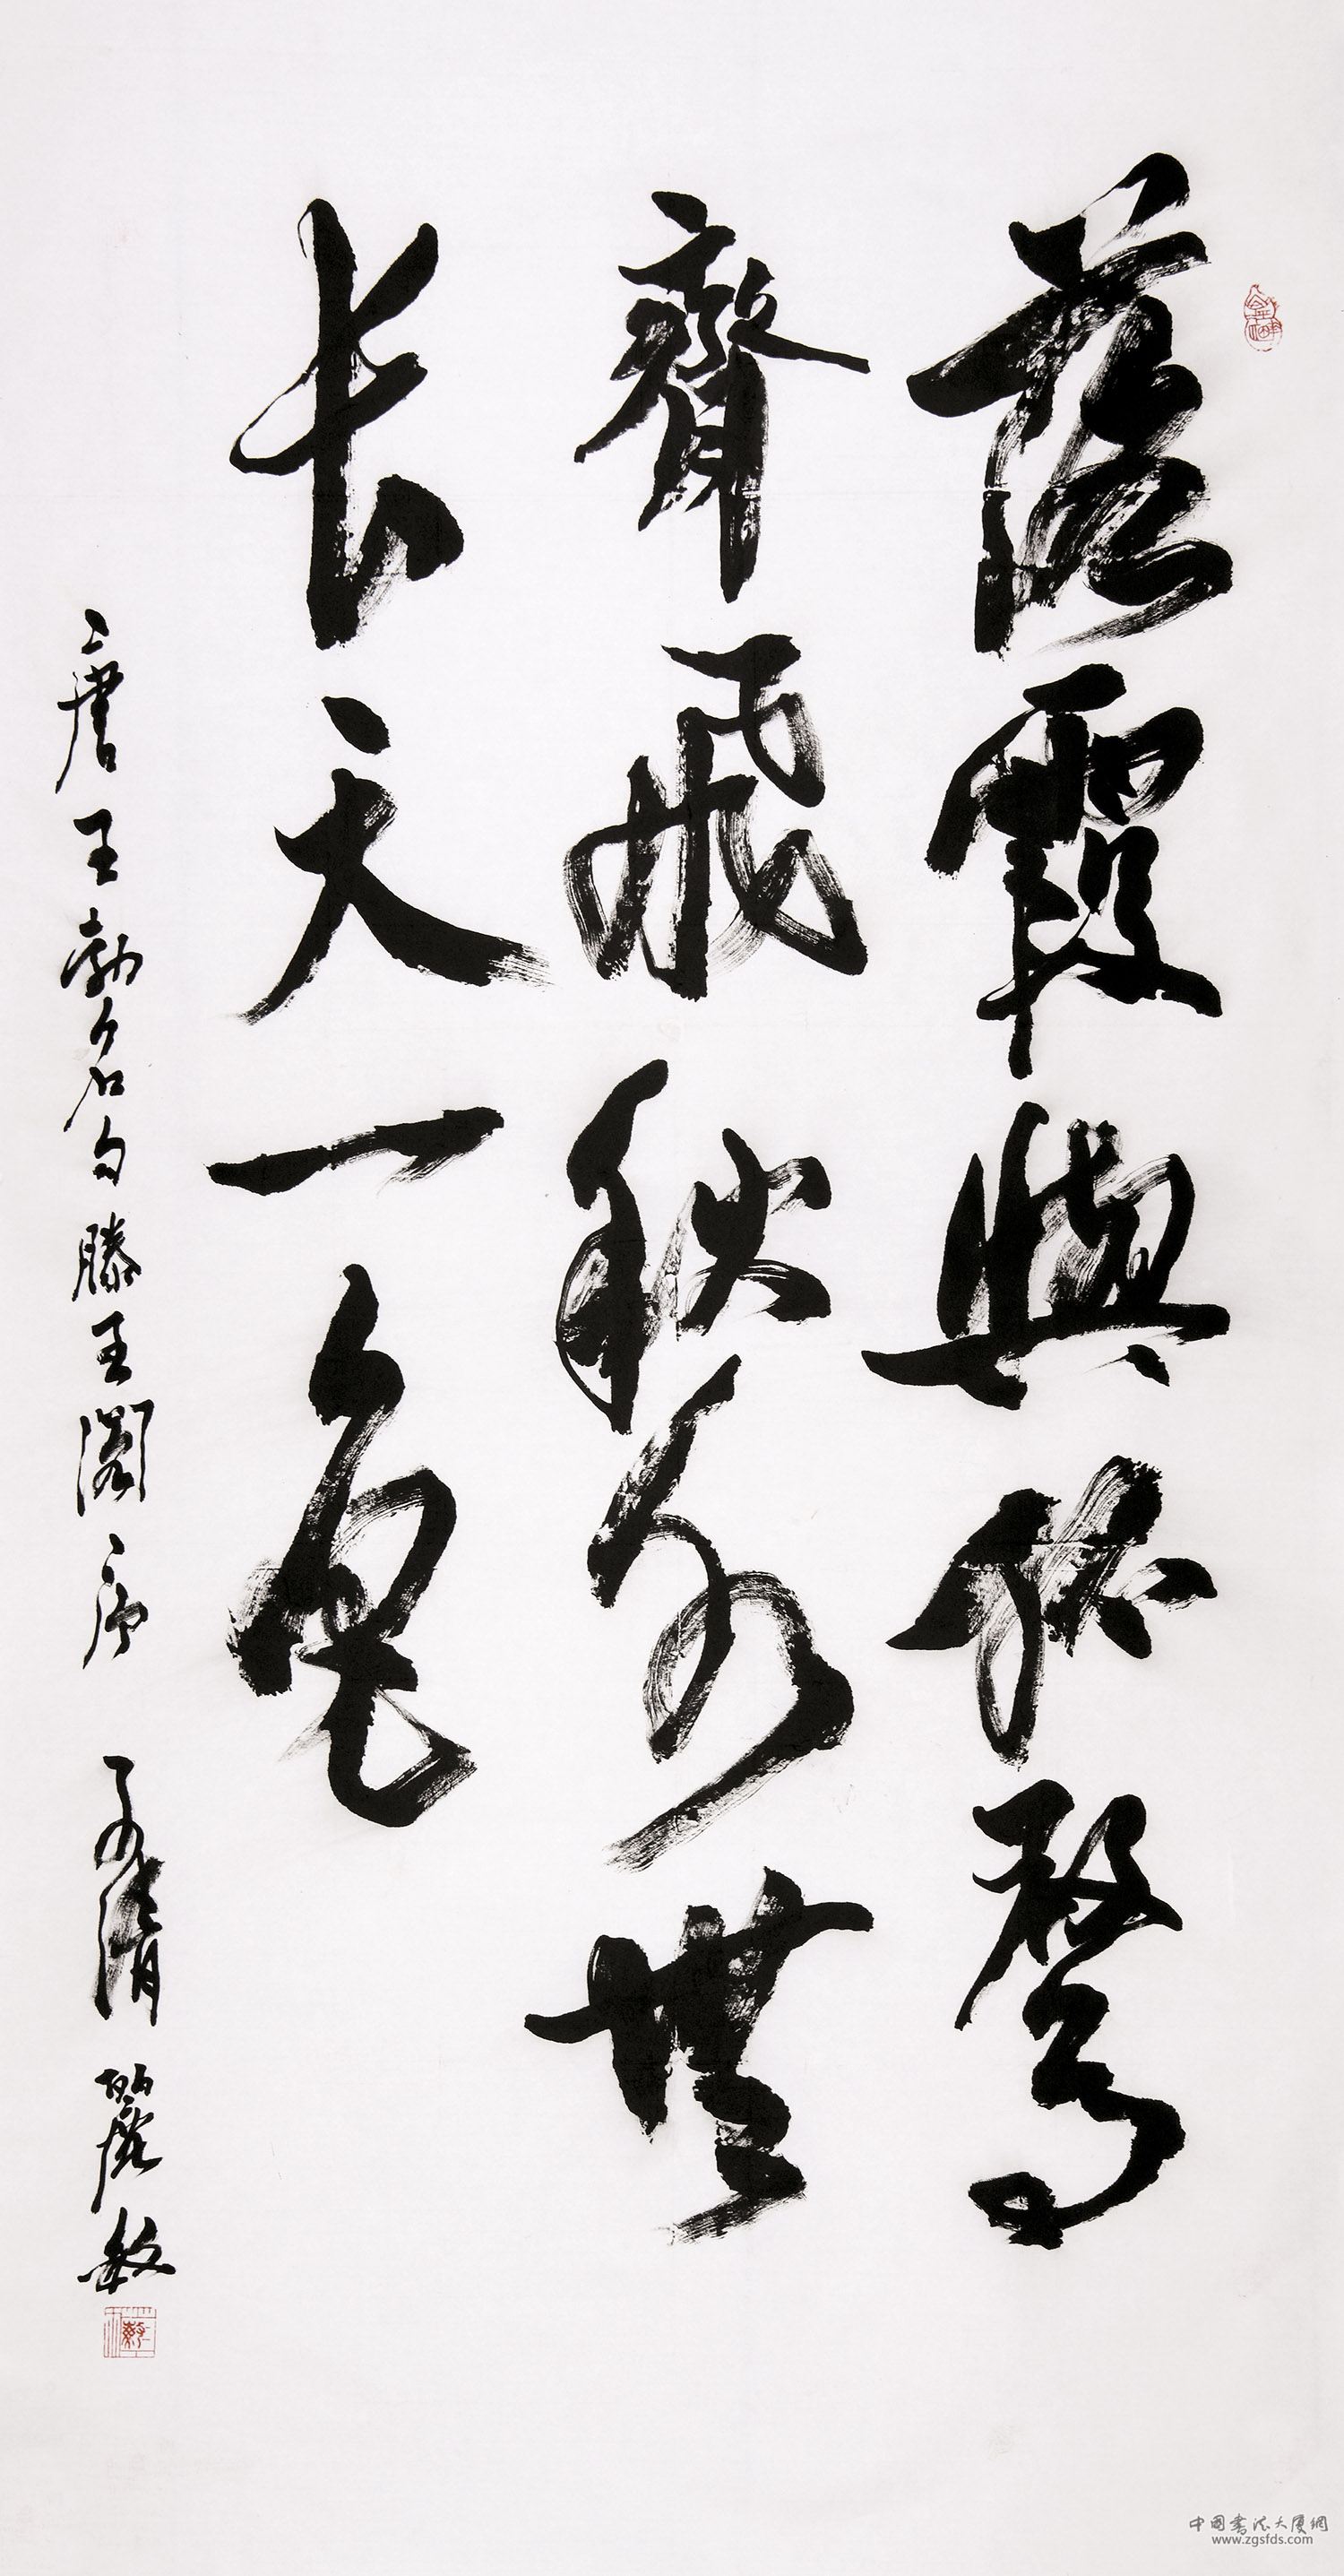 落霞與孤鶩
齊飛秋水共
长天一色
唐王勃名句滕王阁序 麗敏
中國書法大厦網
www.zgsfds.com